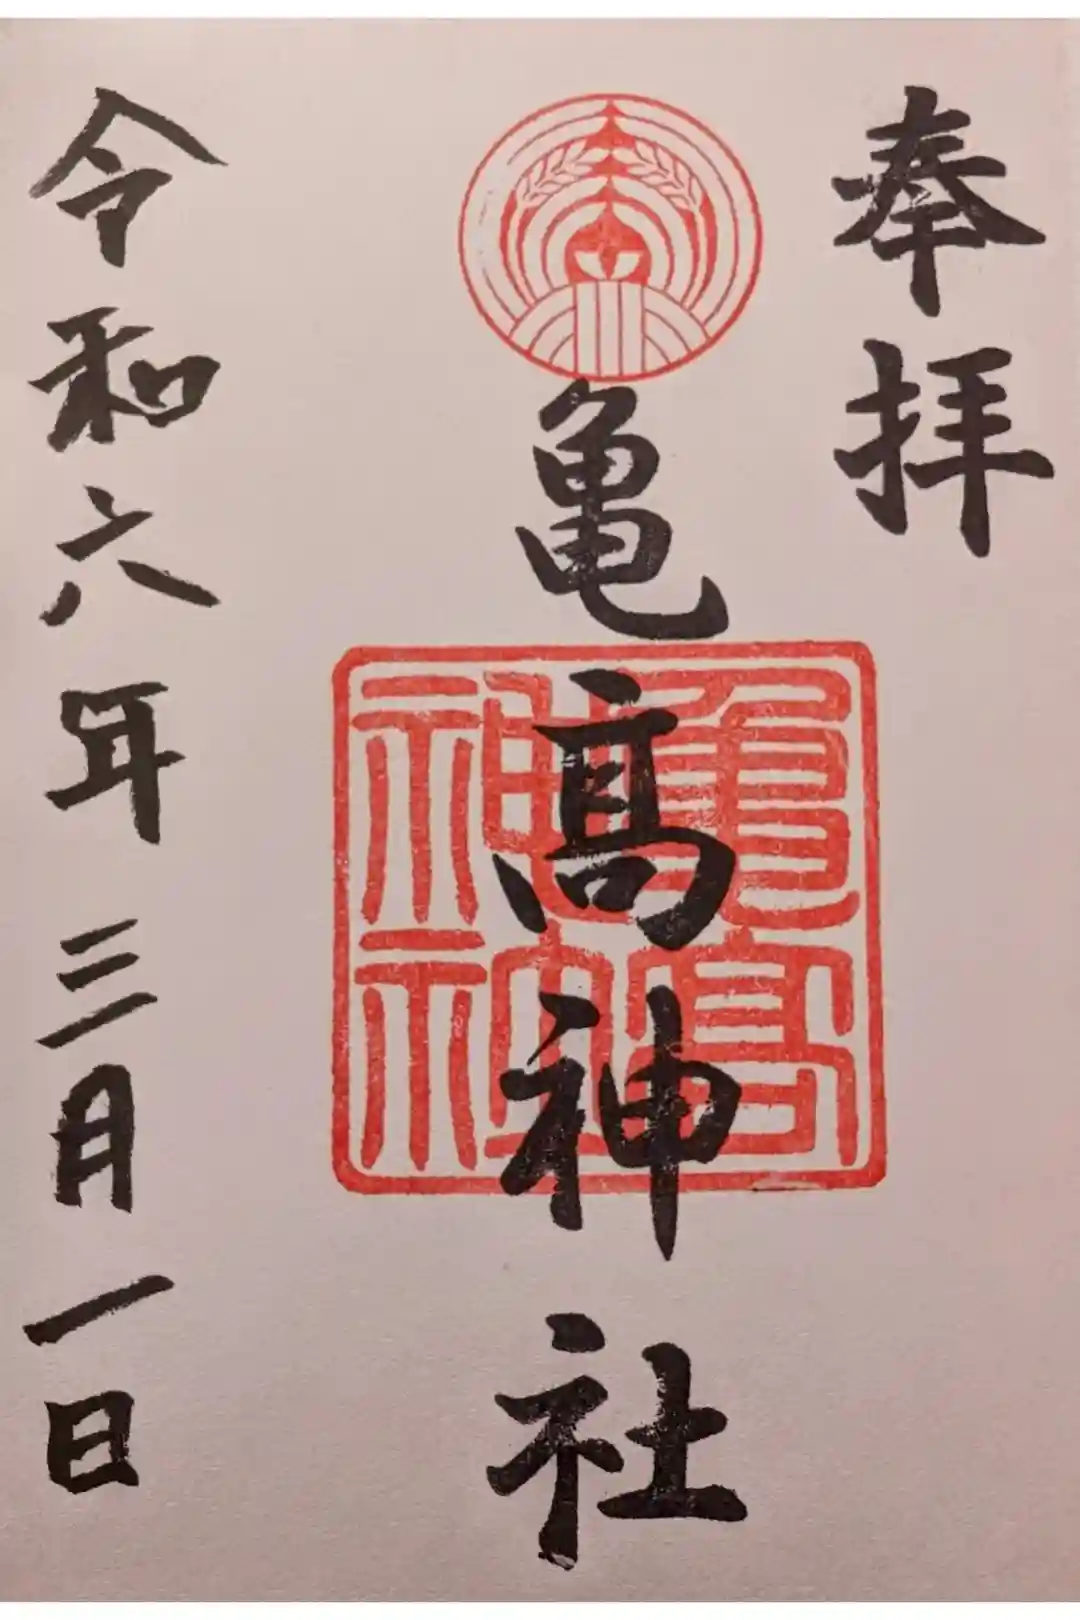 奉拝
亀髙神社
亀髙
神社
令和六年三月一日